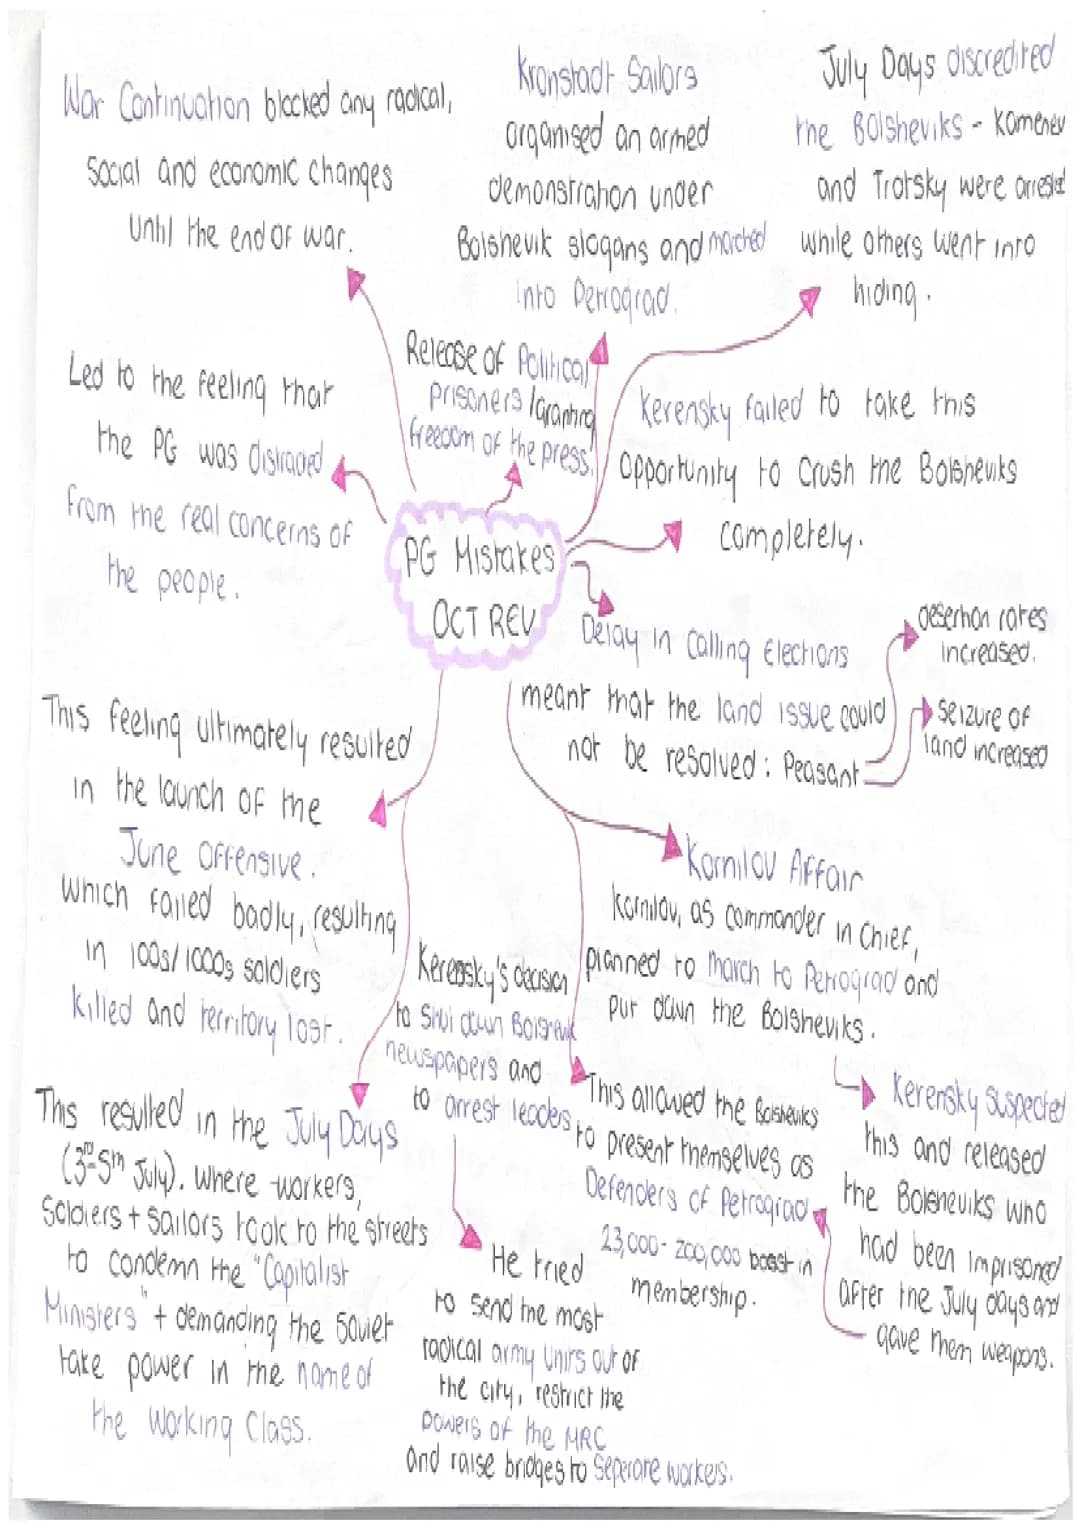 War Continuation blocked any radical,
Social and economic changes
Until the end of war.
Kronstadt Sailors
organised an armed
demonstration under
Bolshevik slogans and marched
into Petrograd.
July Days discredited
the Bolsheviks - Kamenev
and Trotsky were arrested
while others went into
hiding.
Led to the feeling that
the PG was distracted
from the real concerns of
the people.
Release of Political
prisoners / Granting
freedom of the press.
Kerensky failed to take this
opportunity to crush the Bolsheviks
completely.
PG Mistakes
OCT REV
Delay in Calling Elections
meant that the land issue could
not be resolved: Peasant
desertion rates
increased.
Seizure of
land increased
This feeling ultimately resulted
in the launch of the
June Offensive.
which failed badly, resulting
in 100s/1000s soldiers
killed and territory lost.
Kornilov Affair
Kornilov, as commander in Chief,
planned to march to Petrograd and
put down the Bolsheviks.
Kerensky suspected
this and released
the Bolsheviks who
had been imprisoned
after the July days and
gave them weapons.
This allowed the Bolsheviks
to present themselves as
Defenders of Petrograd
23,000-200,000 boost in
membership.
Kerensky's decision
to shut down Bolshevik
newspapers and
to arrest leaders
He tried
to send the most
radical army units out of
the city, restrict the
powers of the MRC
and raise bridges to seperate workers.
This resulted in the July Days
(3rd-5th July). Where workers,
Soldiers + sailors took to the streets
to condemn the "Capitalist
Ministers" + demanding the Soviet
take power in the name of
the Working Class.